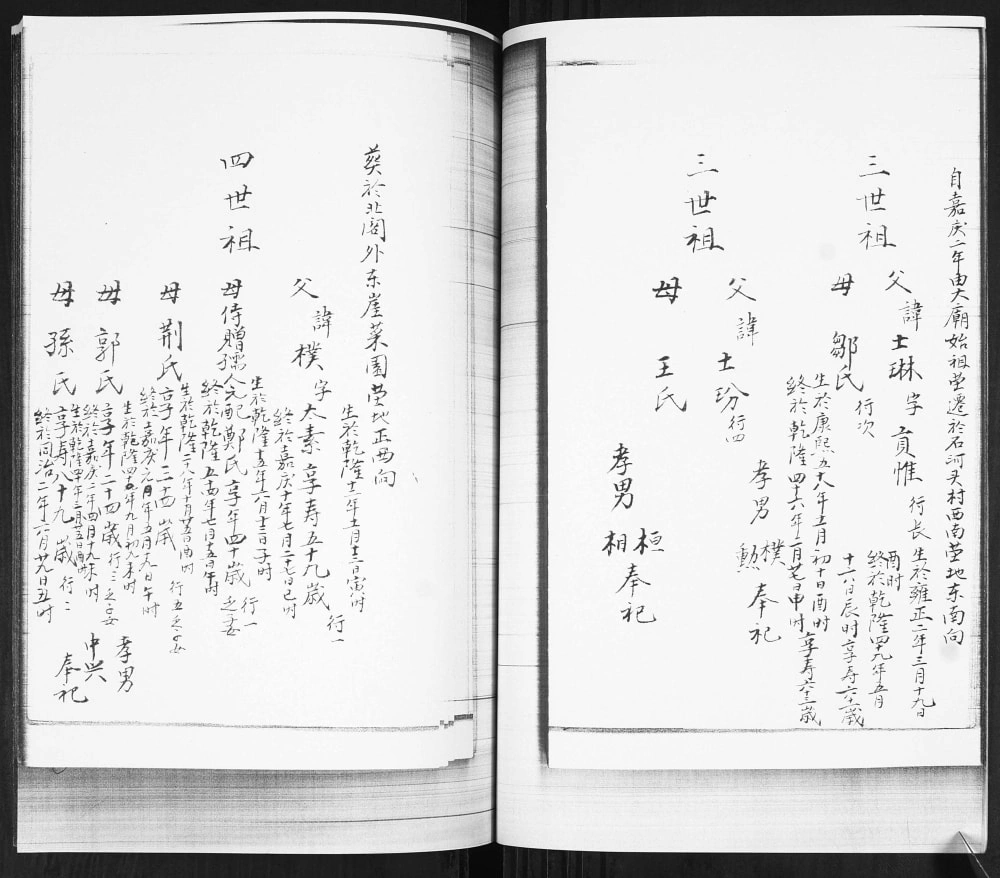 自嘉庆二年由大廟始祖茔遷於石河头村西南茔地东南向
三世祖
父諱士琳字貢惟行长生於雍正二年三月十九日
酉时终於乾隆四十九年五月
十六日辰时享寿六十一歳
母鄒氏行次
生於康熙五十八年五月初十日酉时
终於乾隆四十六年二月廿七日申时享寿六十三歳
孝男樸勲奉祀
三世祖
父諱士玢行四
母王氏
孝男桓相奉祀
葵於北阁外东崖菜園茔地正西向
四世祖
父諱樸字大素享寿五十九歳行一
生於乾隆十二年五月十三日寅时
终於嘉庆十年七月二十七日巳时
母侍贈孺人元配鄭氏享年四十歳行一之妻
生於乾隆十五年六月十三日子时
终於乾隆五十四年七月十五日午时
母荆氏享年三十四歳行五之女
生於乾隆二十八年十月廿五日酉时
终於嘉庆元年五月十九日午时
母郭氏享年二十四歳行三之女
生於乾隆四十九年九月初九未时
终於嘉庆十二年四月十九未时
母孫氏享寿八十九歳行二
生於乾隆四十年三月廿五日酉时
终於同治二年六月廿九日丑时
孝男中兴奉祀